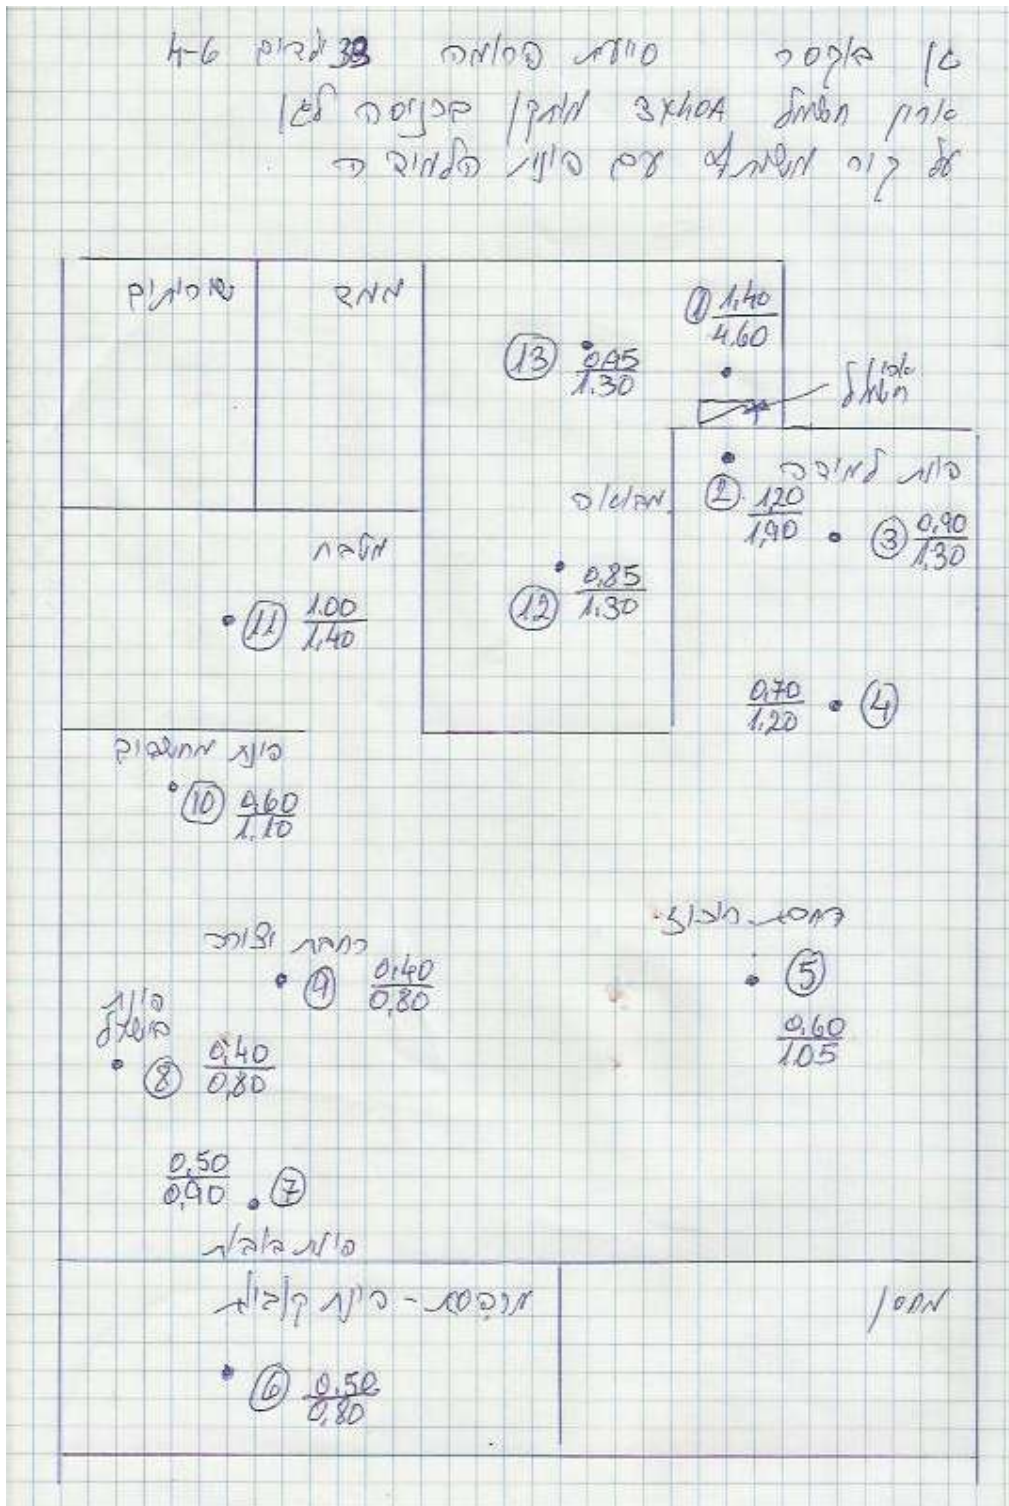 גן בוקסר סייעת פרומה 33 ילדים 4-6
ארון חשמל 3X40A מותקן בכניסה לגן
על קיר משותף עם פינת הלמידה
שירותים
ממד
① 1.40
4.60
⑬ 0.95
1.30
ארון
חשמל
פינת למידה
② 1.20
1.90
③ 0.90
1.30
מבואה
מטבח
⑪ 1.00
1.40
⑫ 0.85
1.30
0.70
1.20 ④
פינת מחשבים
⑩ 0.60
1.10
רחבת ריכוז
⑤
0.60
1.05
רחבת יצירה
⑨ 0.40
0.80
פינת
בישול
⑧ 0.40
0.80
0.50
0.90 ⑦
פינת בובות
מרפסת - פינת קוביות
⑥ 0.50
0.80
מחסן